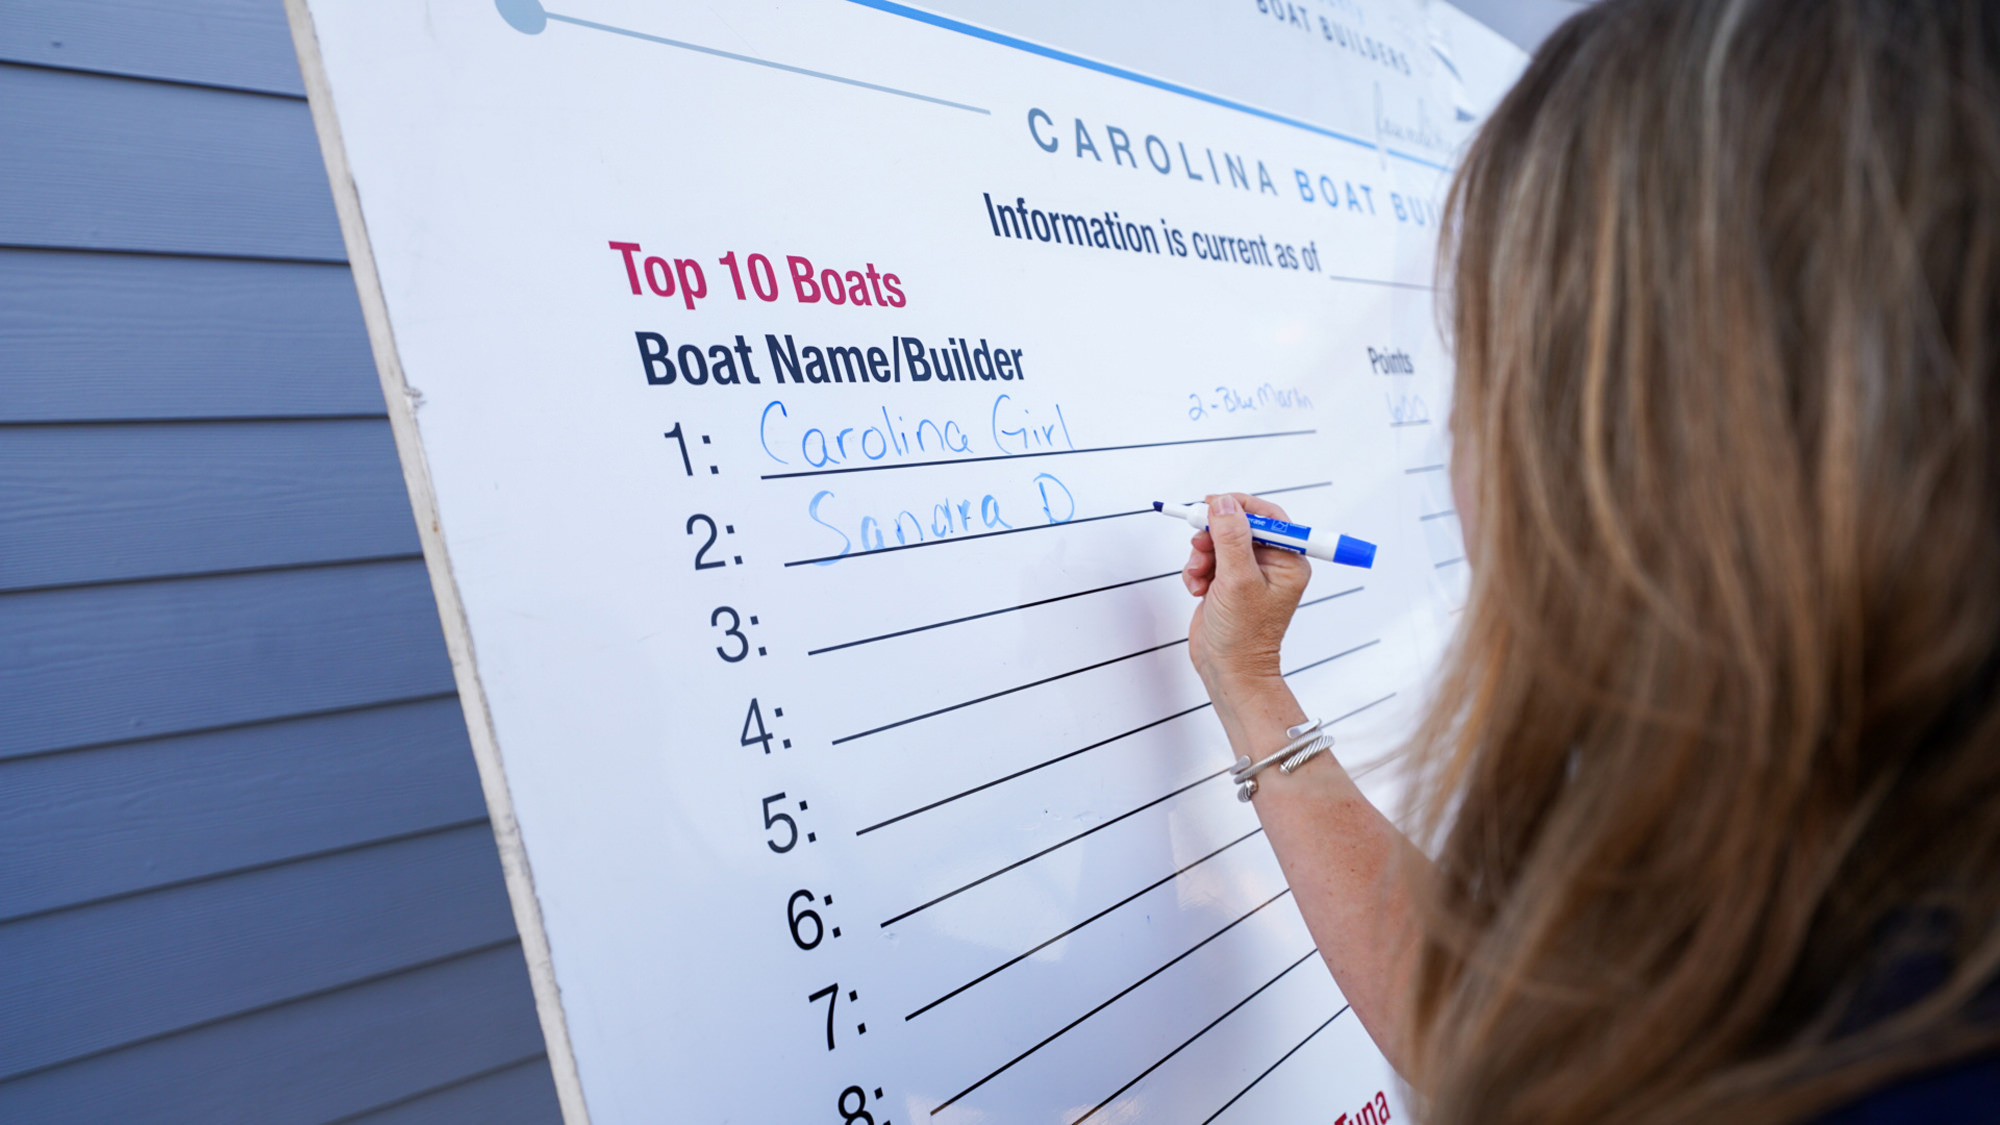 BOAT BUILDERS
CAROLINA BOAT
Information is current as of
Top 10 Boats
Boat Name/Builder
Points
1: Carolina Girl 2-Blue Marlin 600
2: Sandra D
3:
4:
5:
6:
7:
8:
Tuna